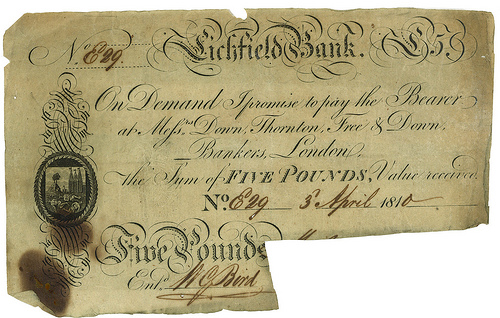 No. E29 Lichfield Bank. £5.
On Demand I promise to pay the Bearer
at Messrs. Down, Thornton, Free & Down,
Bankers, London,
the Sum of FIVE POUNDS, Value received.
No. E29 3d April 1810
Five Pounds
Entd. W G Bird